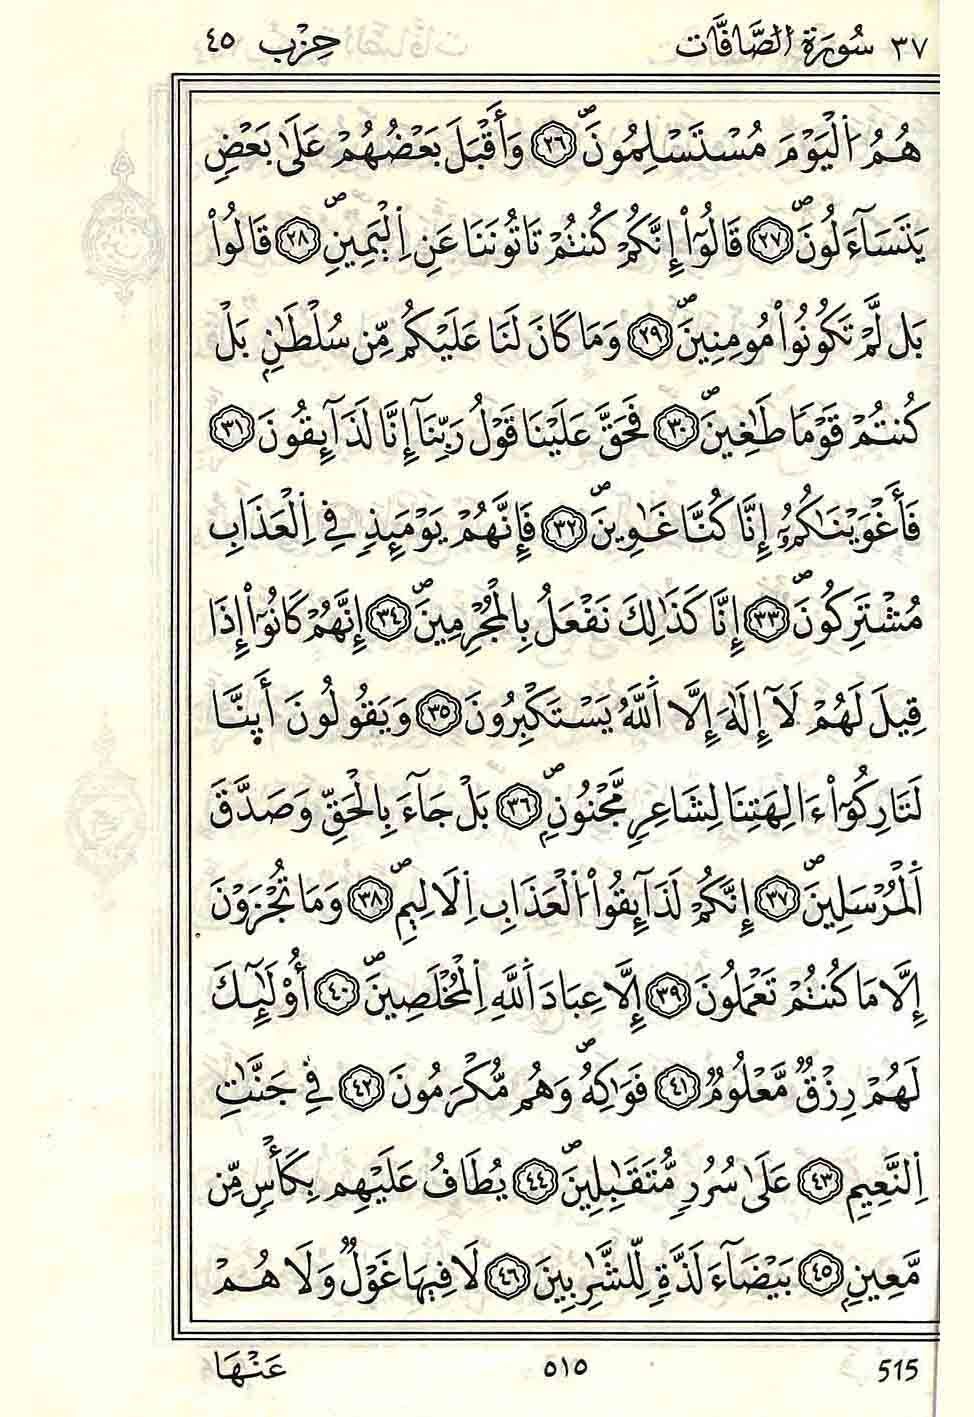 ٣٧ سُورَةُ الصَّافَّات حِزْب ٤٥
هُمُ اُ۬لْيَوْمَ مُسْتَسْلِمُونَۖ ٢٦ وَأَقْبَلَ بَعْضُهُمْ عَلَىٰ بَعْضٍ
يَتَسَآءَلُونَۖ ٢٧ قَالُوٓاْ إِنَّكُمْ كُنتُمْ تَاتُونَنَا عَنِ اِ۬لْيَمِينِۖ ٢٨ قَالُواْ
بَل لَّمْ تَكُونُواْ مُومِنِينَۖ ٢٩ وَمَا كَانَ لَنَا عَلَيْكُم مِّن سُلْطَٰنِۢ بَلْ
كُنتُمْ قَوْماٗ طَٰغِينَۖ ٣٠ فَحَقَّ عَلَيْنَا قَوْلُ رَبِّنَآ إِنَّا لَذَآئِقُونَ ٣١
فَأَغْوَيْنَٰكُمُۥٓ إِنَّا كُنَّا غَٰوِينَۖ ٣٢ فَإِنَّهُمْ يَوْمَئِذٖ فِي اِ۬لْعَذَابِ
مُشْتَرِكُونَۖ ٣٣ إِنَّا كَذَٰلِكَ نَفْعَلُ بِالْمُجْرِمِينَۖ ٣٤ إِنَّهُمْ كَانُوٓاْ إِذَا
قِيلَ لَهُمْ لَآ إِلَٰهَ إِلَّا اَ۬للَّهُ يَسْتَكْبِرُونَ ٣٥ وَيَقُولُونَ أَىِٕنَّا
لَتَارِكُوٓاْ ءَالِهَتِنَا لِشَاعِرٖ مَّجْنُونِۢۖ ٣٦ بَلْ جَآءَ بِالْحَقِّ وَصَدَّقَ
اَ۬لْمُرْسَلِينَۖ ٣٧ إِنَّكُمْ لَذَآئِقُواْ اُ۬لْعَذَابِ اِ۬لَالِيمِۖ ٣٨ وَمَا تُجْزَوْنَ
إِلَّا مَا كُنتُمْ تَعْمَلُونَ ٣٩ إِلَّا عِبَادَ اَ۬للَّهِ اِ۬لْمُخْلَصِينَۖ ٤٠ أُوْلَٰٓئِكَ
لَهُمْ رِزْقٞ مَّعْلُومٞ ٤١ فَوَٰكِهُۖ وَهُم مُّكْرَمُونَ ٤٢ فِے جَنَّٰتِ
اِ۬لنَّعِيمِ ٤٣ عَلَىٰ سُرُرٖ مُّتَقَٰبِلِينَۖ ٤٤ يُطَافُ عَلَيْهِم بِكَأْسٖ مِّن
مَّعِينِۢ ٤٥ بَيْضَآءَ لَذَّةٖ لِّلشَّٰرِبِينَ ٤٦ لَا فِيهَا غَوْلٞ وَلَا هُمْ
عَنْهَا ٥١٥ 515